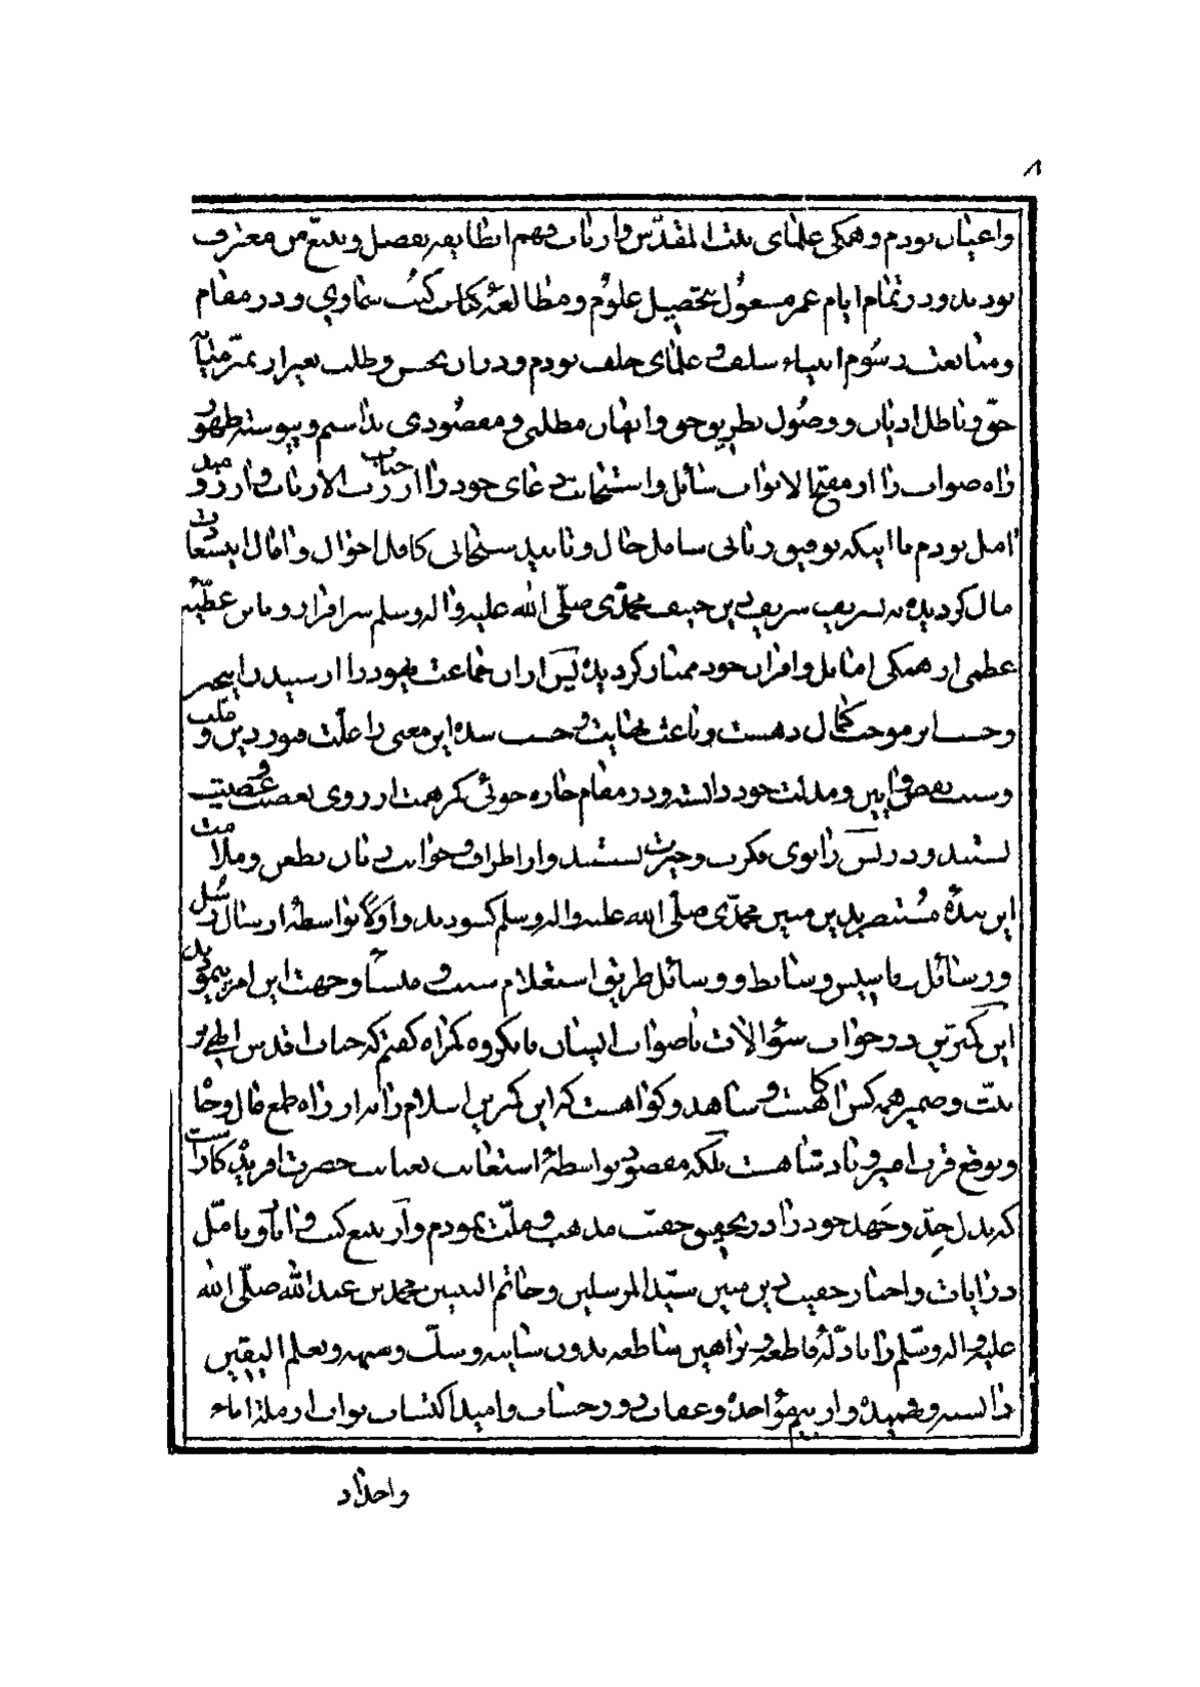 ۸
واعیان بودم و همکی علمای بیت المقدس وارباب فهم انطایفه بفضل و تتبع من معترف
بودند و در تمام ایام عمر مشغول بتحصیل علوم و مطالعهٔ کتاب کتب سماوی و در مقام
ومتابعت رسوم انبیاء سلف و علمای خلف بودم و دران بحس وطلب بغیر از تمییز میانه
حق و باطل ادیان و وصول بطریق حق و ایقان مطلبی و مقصودی نداشتم و پیوسته ظهور
راه صواب را از مفتح الابواب سائل واستجابت دعای خود را از جناب رب الارباب و ارزومند
امل بودم تا اینکه توفیق ربانی شامل حال و تایید سبحانی کامل احوال و امال این سعادت
مال کردیده به تشریف شریف دین حنیف محمدی صلی الله علیه واله وسلم سرافراز و باین عطیهٔ
عظمی از همکی اماثل و اقران خود ممتاز کردیده پس ازان جماعت یهود را از رسیدن این خبر
و موجب کمال دهشت و باعث نهایت وحست شده این معنی را علت دین و ملت
وسبب نقص آیین و مذلت خود دانسته و در مقام چاره جوئی کمر همت از روی تعصب و عصبیت
بستند و در پس زانوی مکرب وحیرت نشستند و از اطراف و جوانب زبان بطعن و ملامت
این بندهٔ مستبصر بدین مبین محمدی صلی الله علیه واله وسلم کشودند و اولا بواسطهٔ ارسال رسل
و رسائل وتاسیس وسایط و وسائل طریق استعلام سبب و منشأ و جهت این امر پیمودند
این کمترین در جواب سؤالات ناصواب ایشان بانکروه کمراه کفتم که جناب اقدس الهی بر
نیت و ضمیر همه کس اکاهست و شاهد و کواهست که این کمترین اسلام را نه از راه طمع مال و جاه
و توقع قرب امیر و پادشاهست بلکه مقصود بواسطهٔ استغاثه بجناب حضرت افریدکاراست
که بذل جد و جهد خود را در تحقیق حقیت مذهب و ملت نمودم و از تتبع کتب و تامل
در ایات و اخبار حقیت دین مبین سید المرسلین وخاتم النبیین محمد بن عبدالله صلی الله
علیه واله وسلم را بادلهٔ قاطعه و براهین ساطعه بدون شایبه و شک و شبهه و بعلم الیقین
دانسته و فهمیده و از بیم مؤاخذه و عقاب روز حساب و امید اکتساب ثواب از ملت اباء
واجداد